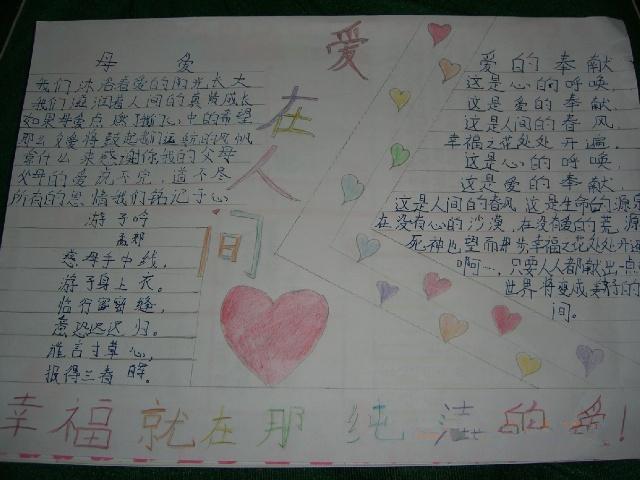 母 爱
我们沐浴着爱的阳光长大
我们滋润着人间的真爱成长
如果母爱点燃了我心中的希望
那么父爱将鼓起我们远航的风帆
拿什么来感谢你我的父母
父母的爱说不完 道不尽
所有的恩情我们铭记于心
游子吟
孟郊
慈母手中线，
游子身上衣。
临行密密缝，
意恐迟迟归。
谁言寸草心，
报得三春晖。
爱在人间
爱的奉献
这是心的呼唤，
这是爱的奉献，
这是人间的春风，
幸福之花处处开遍，
这是心的呼唤，
这是爱的奉献，
这是人间的春风 这是生命的源泉
在没有心的沙漠，在没有爱的荒源
死神也望而却步幸福之花处处开遍
啊…，只要人人都献出一点
世界将变成美好的
间。
幸福就在那纯洁的爱！